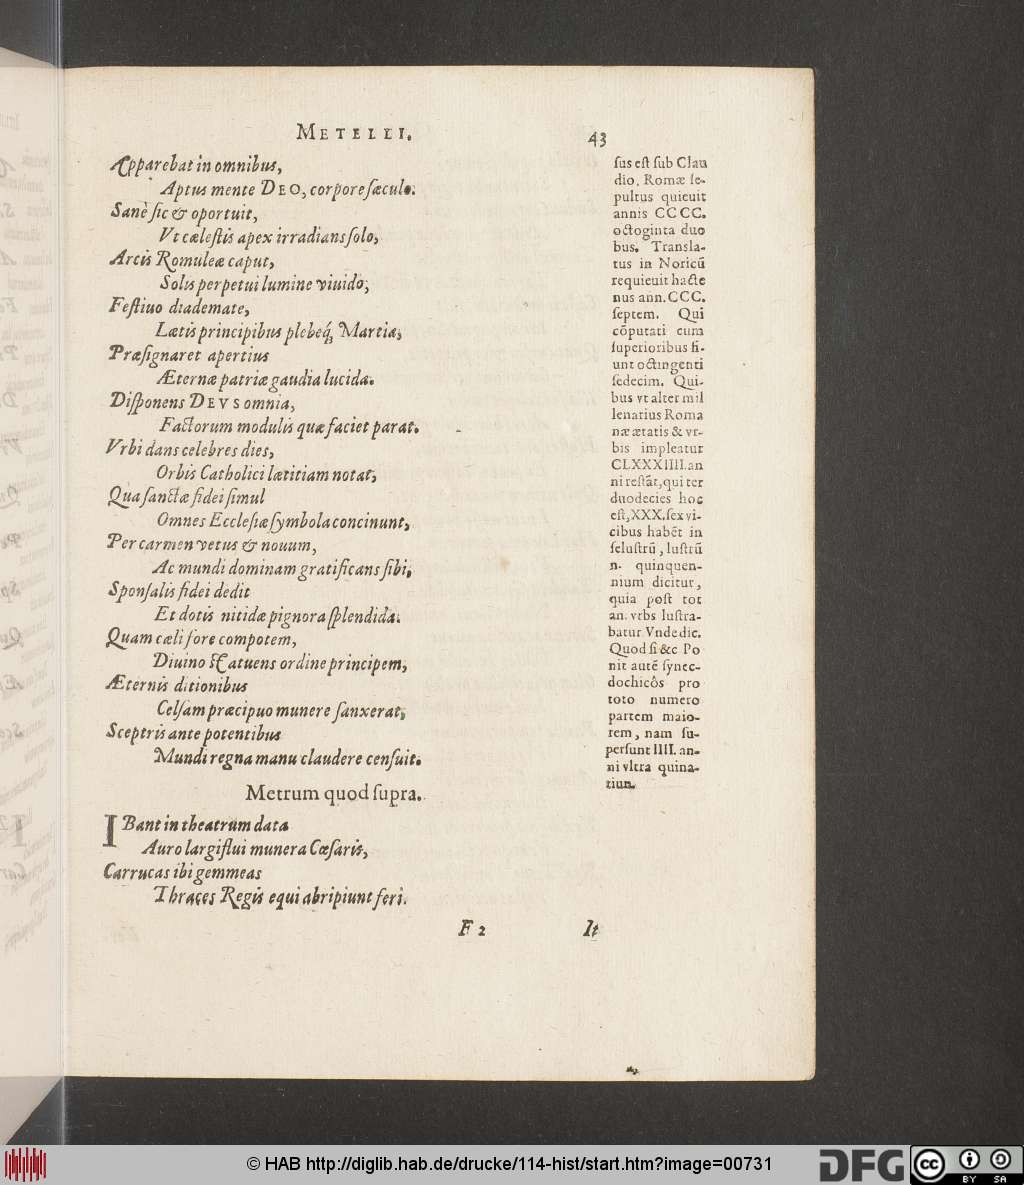 METELLI.
43
Apparebat in omnibus,
Aptus mente DEO, corpore sæculo.
Sanè sic & oportuit,
Vt cælestis apex irradians solo,
Arcis Romuleæ caput,
Solis perpetui lumine viuido,
Festiuo diademate,
Lætis principibus plebeq́; Martia,
Præsignaret apertius
Æternæ patriæ gaudia lucida.
Disponens DEVS omnia,
Factorum modulis quæ faciet parat.
Vrbi dans celebres dies,
Orbis Catholici lætitiam notat,
Qua sanctæ fidei simul
Omnes Ecclesiæ symbola concinunt,
Per carmen vetus & nouum,
Ac mundi dominam gratificans sibi,
Sponsalis fidei dedit
Et dotis nitidæ pignora splendida.
Quam cæli fore compotem,
Diuino statuens ordine principem,
Æternis ditionibus
Celsam præcipuo munere sanxerat,
Sceptris ante potentibus
Mundi regna manu claudere censuit.
Metrum quod supra.
IBant in theatrum data
Auro largiflui munera Cæsaris,
Carrucas ibi gemmeas
Thraces Regis equi abripiunt feri.
F 2
It
sus est sub Clau
dio, Romæ se-
pultus quieuit
annis CCCC.
octoginta duo
bus. Transla-
tus in Noricũ
requieuit hacte
nus ann. CCC.
septem. Qui
cõputati cum
superioribus fi-
unt octingenti
sedecim. Qui-
bus vt alter mil
lenarius Roma
næ ætatis & vr-
bis impleatur
CLXXXIIII. an
ni restãt, qui ter
duodecies hoc
est, XXX. sex vi-
cibus habẽt in
se lustrũ, lustrũ
n. quinquen-
nium dicitur,
quia post tot
an. vrbs lustra-
batur Vnde dic.
Quod si &c Po
nit autẽ synec-
dochicôs pro
toto numero
partem maio-
rem, nam su-
persunt IIII. an-
ni vltra quina-
rium.
© HAB http://diglib.hab.de/drucke/114-hist/start.htm?image=00731
DFG
cc
BY
SA